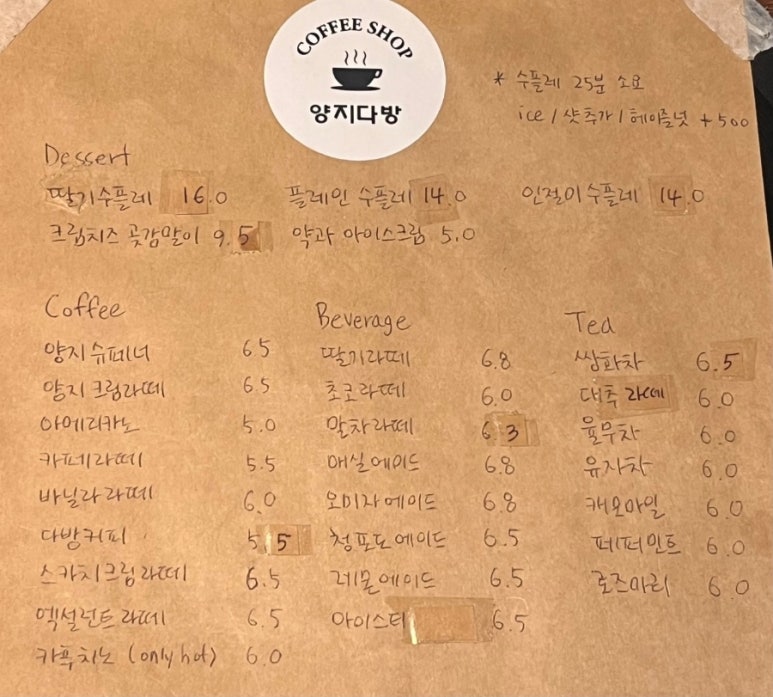 COFFEE SHOP
양지다방
* 수플레 25분 소요
ice / 샷추가 / 헤이즐넛 +500
Dessert
딸기수플레 16.0 플레인 수플레 14.0 인절미 수플레 14.0
크림치즈 곶감말이 9.5 약과 아이스크림 5.0
Coffee
양지슈페너 6.5
양지크림라떼 6.5
아메리카노 5.0
카페라떼 5.5
바닐라라떼 6.0
다방커피 5.5
스카치크림라떼 6.5
엑설런트라떼 6.5
카푸치노 (only hot) 6.0
Beverage
딸기라떼 6.8
초코라떼 6.0
말차라떼 6.3
매실에이드 6.8
오미자에이드 6.8
청포도에이드 6.5
레몬에이드 6.5
아이스티 6.5
Tea
쌍화차 6.5
대추라떼 6.0
율무차 6.0
유자차 6.0
캐모마일 6.0
페퍼민트 6.0
로즈마리 6.0